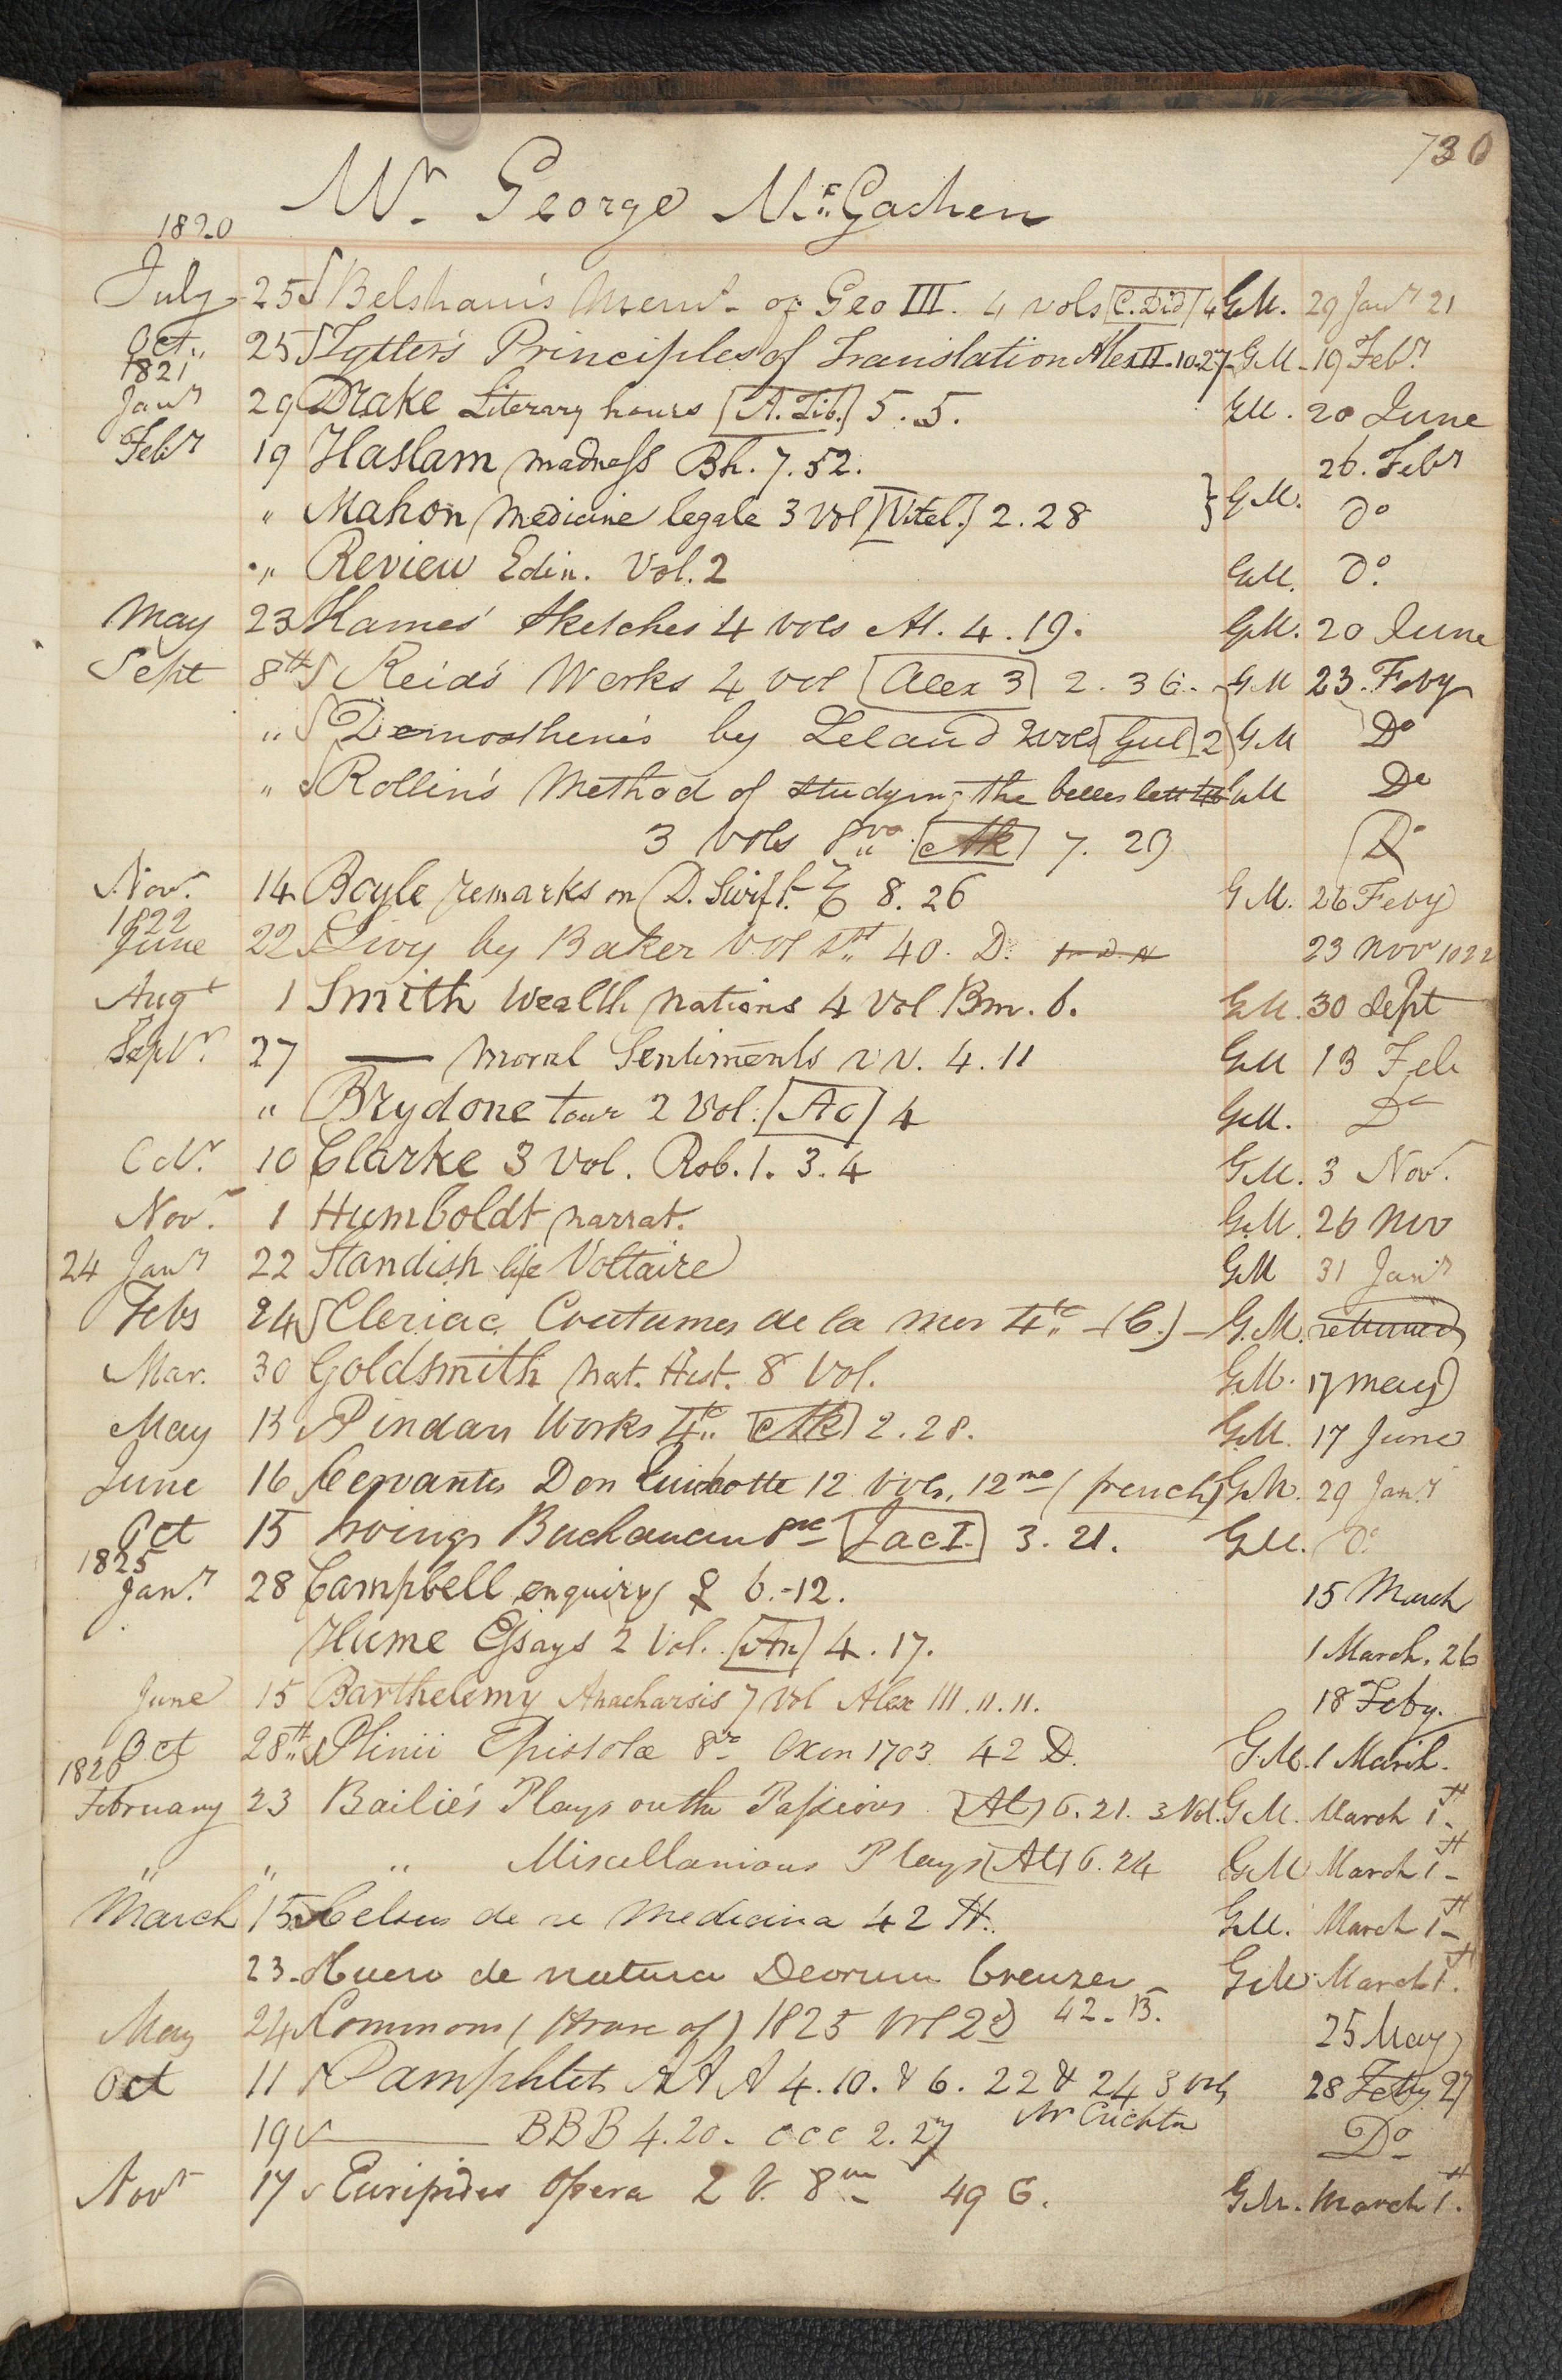 730
Mr. George McGachen
1820
July 25 Belsham's Memrs. of Geo III. 4 vols [C. Did] 4 G.M. 29 Janry 21
Oct. 25 Tytler's Principles of Translation Alex II. 10.27 G.M. 19 Febry
1821
Janry 29 Drake Literary hours [A. Tib.] 5.5. G.M. 20 June
Febry 19 Haslam madness Bh. 7.52. 26. Febry
" Mahon Medicine legale 3 Vol [Vitel.] 2.28 } G.M. Do
" Review Edin. Vol. 2 G.M. Do.
May 23 Kames' Sketches 4 vols At. 4.19. G.M. 20 June
Sept 8th Reid's Works 4 vol [Alex 3] 2.36. G M 23. Feby
" Demosthenes by Leland 2 vols [Gul] 2 G M Do
" Rollin's Method of studying the belles lett G M Do
3 Vols 8vo. [Ak] 7. 29 Do
Nov. 14 Boyle remarks on D. Swift. 8.26 G M. 26 Feby
1822
June 22 Livy by Baker Vol 1st 40. D. 23 Nov 1822
Augt 1 Smith Wealth nations 4 Vol Bm. 6. G.M. 30 Sept
Septr. 27 —— moral Sentiments 4.11 G.M 13 Feb
" Brydone tour 2 Vol. [Ac] 4 G.M. Do
Octr. 10 Clarke 3 Vol. Rob. 1. 3. 4 G.M. 3 Nov.
Nov. 1 Humboldt narrat. G.M. 26 Nov
24 Janry 22 Standish life Voltaire G.M 31 Janry
Feby 24 Cleriac Coutumes de la mer 4to (C.) G.M. returned
Mar. 30 Goldsmith Nat. Hist. 8 Vol. G.M. 17 May
May 13 Pindari Works 4to [Ak] 2.28. G.M. 17 June
June 16 Cervantes Don Quichotte 12 Vols. 12mo (french) G.M. 29 Janry
Oct 15 Irvings Buchanan 8vo [Jac I.] 3. 21. G.M. Do
1825
Janry 28 Campbell enquiry ♀ 6.-12. 15 March
Hume Essays 2 Vol. [An] 4.17. 1 March. 26
June 15 Barthelemy Anacharsis 7 Vol Alex III. 11. 11. 18 Feby.
Oct 28th Plinii Epistolæ 8vo Oxon 1703. 42 D. G.M. 1 March.
1826
February 23 Bailie's Plays on the Passions [At] 6. 21. 3 Vol. G.M. March 1st
" " " Miscellanious Plays [At] 6. 24 G.M March 1st
March 15 Celsus de re Medicina 42 H. G.M. March 1st
23 Cicero de natura Deorum Creuzer 42.13. G.M. March 1st.
May 24 Commons (House of) 1825 Vol 2d 25 May
Oct 11 Pamphlets A A A 4.10. & 6. 22 & 24 3 vols 28 Feby 27
19 —— BBB 4.20. CCC 2.27 Mr Crichton Do
Novr 17 Euripides Opera 2 V. 8vo 49 G. G.M. March 1st.